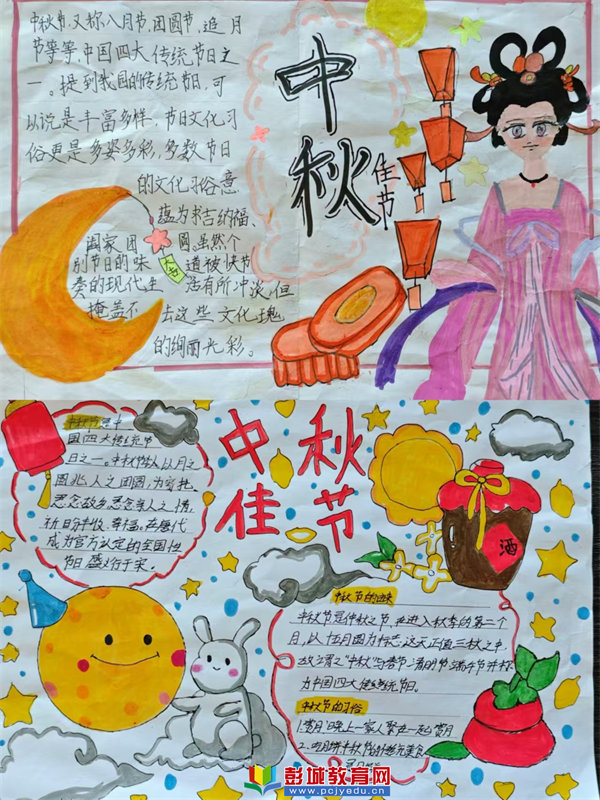 中秋节,又称八月节,团圆节,追月
节等等,中国四大传统节日之
一。提到我国的传统节日,可
以说是丰富多样,节日文化习
俗更是多姿多彩,多数节日
的文化习俗意
蕴为求吉纳福、
阖家团圆,虽然个
别节日的味道被快节
奏的现代生活有所冲淡,但
掩盖不去这些文化瑰
的绚丽光彩。
中秋
佳节
中秋
佳节
中秋节是中
国四大传统节
日之一。中秋节以月之
圆兆人之团圆,为寄托
思念故乡思念亲人之情,
祈日丰收、幸福。在唐代
成为官方认定的全国性
节日,盛行于宋。
酒
中秋节的由来
中秋节是仲秋之节,在进入秋季的第二个
月,以十五月圆为标志,这天正值三秋之中
故谓之"中秋",与春节清明节端午节并称
为中国四大传统节日。
中秋节的习俗
1.赏月:晚上一家人聚在一起赏月
彭城教育网
www.pcjyedu.cn